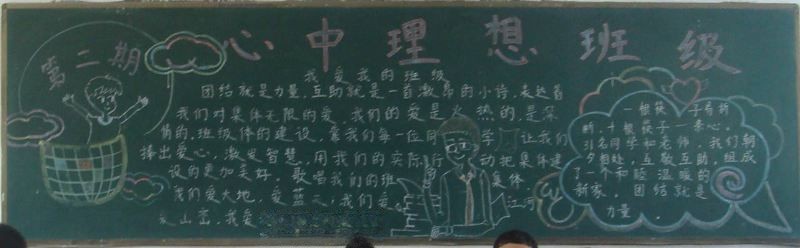 心中理想班级
第二期
我爱我的班级
团结就是力量,互助就是一首激昂的小诗,表达着
我们对集体无限的爱,我们的爱是火热的,是深
情的,班级体的建设,靠我们每一位同学,让我们
捧出爱心,激发智慧,用我们的实际行动把集体建
设的更加美好,歌唱我们的班集体,
我们爱大地,爱蓝天,我们爱江河
爱山峦,我爱
一根筷子易折
断,十根筷子一条心。
31名同学和老师,我们朝
夕相处,互敬互助,组成
了一个和睦温暖的
新家,团结就是
力量。